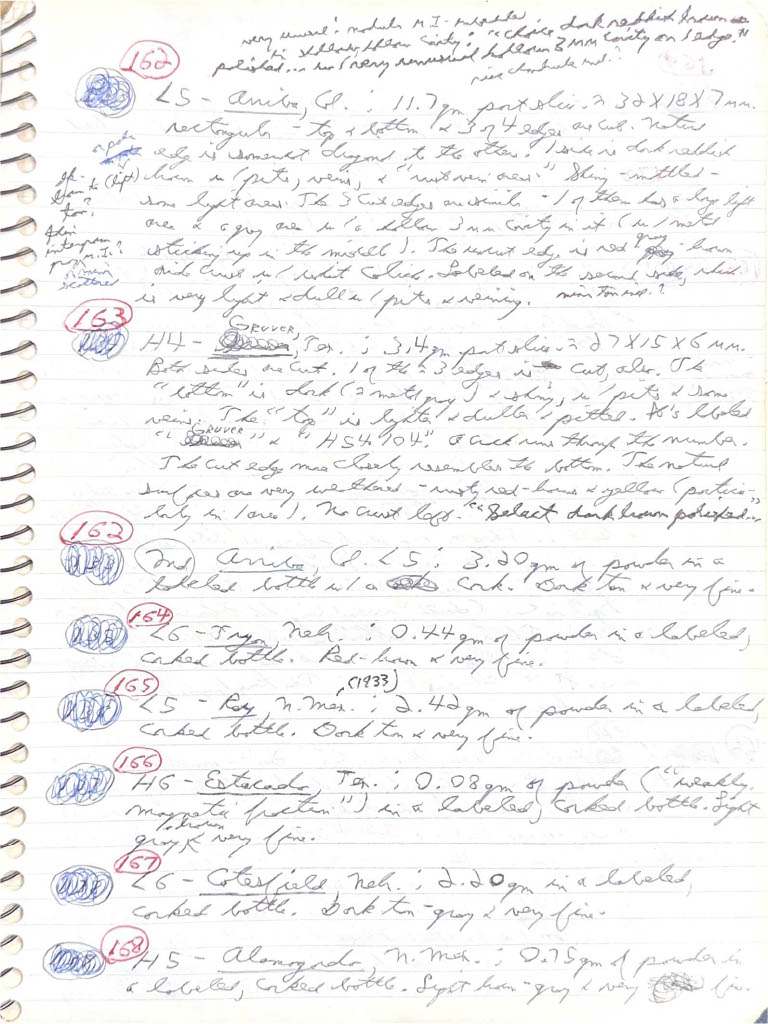 very unusual: nodule M.I.
in shallow, hollow cavity: "Choice dark reddish brown
polished... w/ very unusual hollow 3 mm cavity on 1 edge."
162
L5 - Arriba, Col.: 11.7 gm part slice ≈ 32 X 18 X 7 mm.
rectangular - top & bottom & 3 of 4 edges are cut. Natural
edge is somewhat diagonal to the others. 1 side is dark reddish
brown w/ pits, veins, & "rust vein areas." Shiny - mottled -
some light areas. The 3 cut edges are similar - 1 of them has a large light
area & a gray area w/ a hollow 3 mm cavity in it (w/ metal
sticking up in the middle). The uncut edge is red gray-brown
Labeled on the second side, which
is very light & dull w/ pits & veining.
163
GRUVER,
H4 - Tex.: 3.4 gm part slice ≈ 27 X 15 X 6 mm.
Both sides are cut. 1 of the ≈ 3 edges is cut, also. The
"bottom" is dark (≈ metal gray) & shiny, w/ pits & some
veins. The "top" is lighter & duller & pitted. It's labeled
"GRUVER" & "H54.104." A crack runs through the number.
The cut edge more closely resembles the bottom. The natural
surfaces are very weathered - rusty red-brown & yellow (particu-
larly in 1 area). No crust left. "Select dark brown polished..."
162
2nd Arriba, Col. L5: 3.20 gm of powder in a
labeled bottle w/ a cork. Dark tan & very fine.
164
L6 - Tryon, Neb.: 0.44 gm of powder in a labeled,
corked bottle. Red-brown & very fine.
165
L5 - Roy, N. Mex. (1933): 2.42 gm of powder in a labeled,
corked bottle. Dark tan & very fine.
166
H6 - Estacado, Tex.: 0.08 gm of powder ("weakly
magnetic fraction") in a labeled, corked bottle. Light
gray & brown very fine.
167
L6 - Cotesfield, Neb.: 2.20 gm in a labeled,
corked bottle. Dark tan-gray & very fine.
168
H5 - Alamogordo, N. Mex.: 0.75 gm of powder in
a labeled, corked bottle. Light brown-gray & very fine.